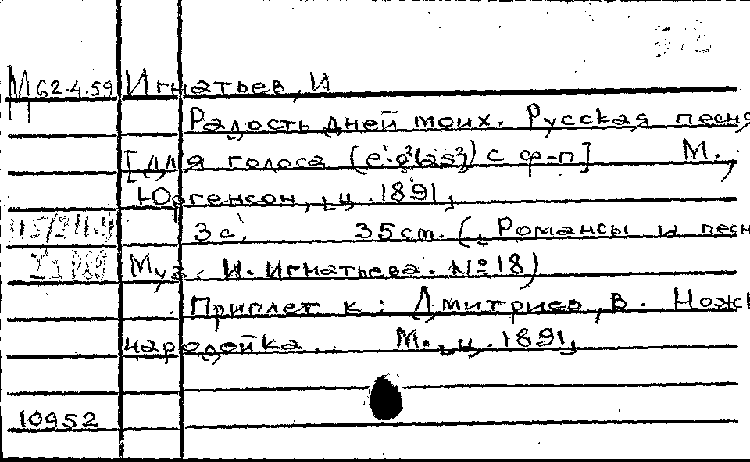 М 62-4.59 Игнатьев, И
Радость дней моих. Русская песня
[для голоса (e¹-g²(as²) с ф-п] М.,
Юргенсон, ц. 1891,
3 с. 35 см. (Романсы и песн
Муз. И. Игнатьева. № 18)
Приплет к: Дмитриев, В.
М., ц. 1891,
10952